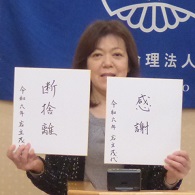 理法人
断捨離
令和六年
感謝
令和六年